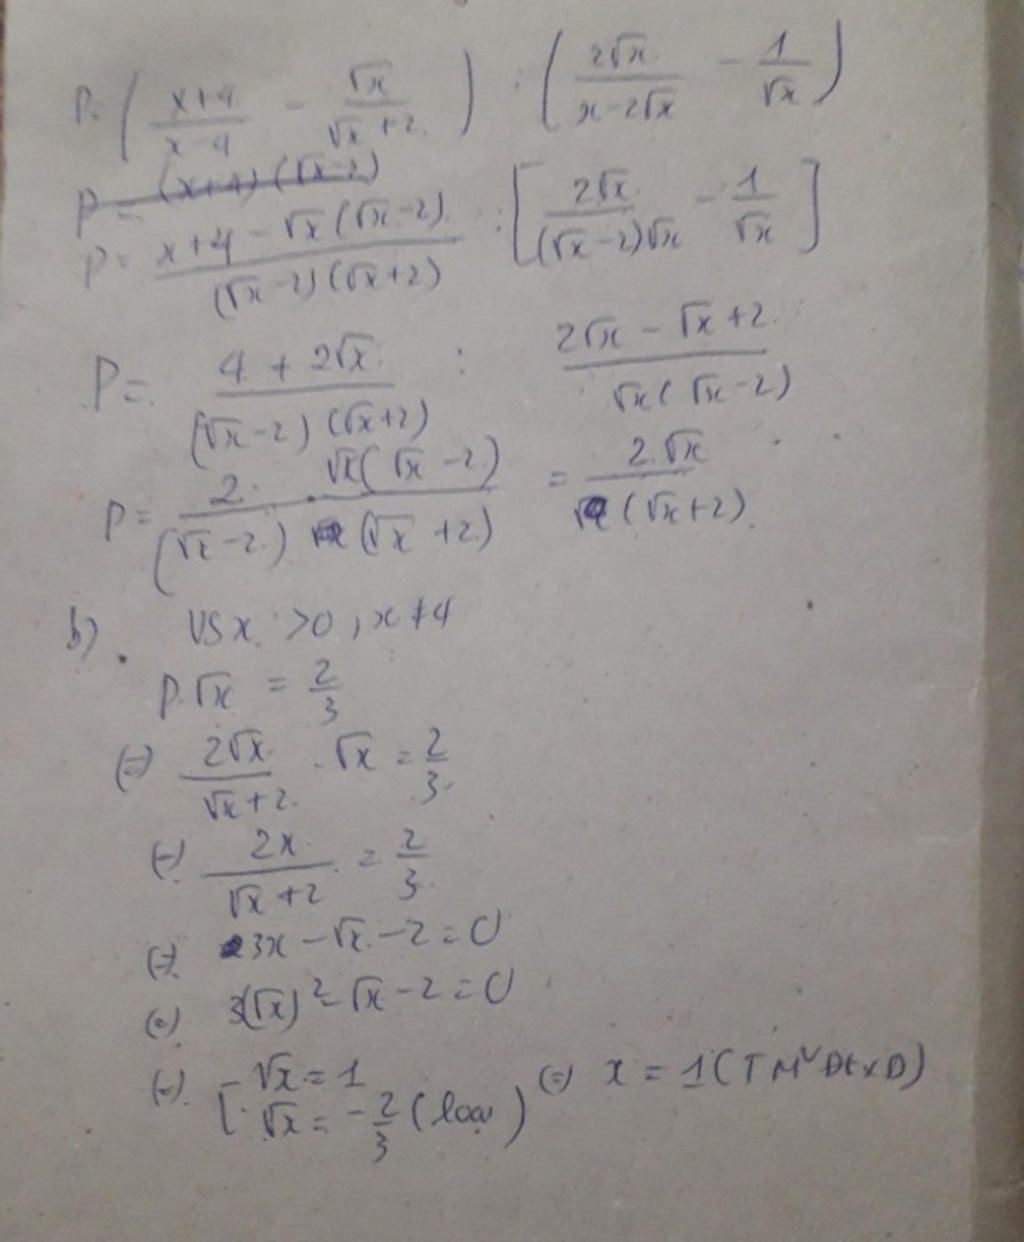 P = ( (x+4)/(x-4) - √x/(√x+2) ) : ( 2√x/(x-2√x) - 1/√x )
P = (x+4)(√x-2)
P = (x+4-√x(√x-2))/((√x-2)(√x+2)) : [ 2√x/((√x-2)√x) - 1/√x ]
P = (4+2√x)/((√x-2)(√x+2)) : (2√x-√x+2)/(√x(√x-2))
P = (2.√x(√x-2))/((√x-2)(√x+2)) = 2.√x/(√x+2)
b) Vs x >0, x≠4
P.√x = 2/3
(=) 2√x/(√x+2) .√x = 2/3
(=) 2x/(√x+2) = 2/3
(=) 3x-√x-2=0
(=) 3(√x)²-√x-2=0
(=) [ √x=1
√x=-2/3 (loại) (=) x = 1 (TM ĐKXĐ)